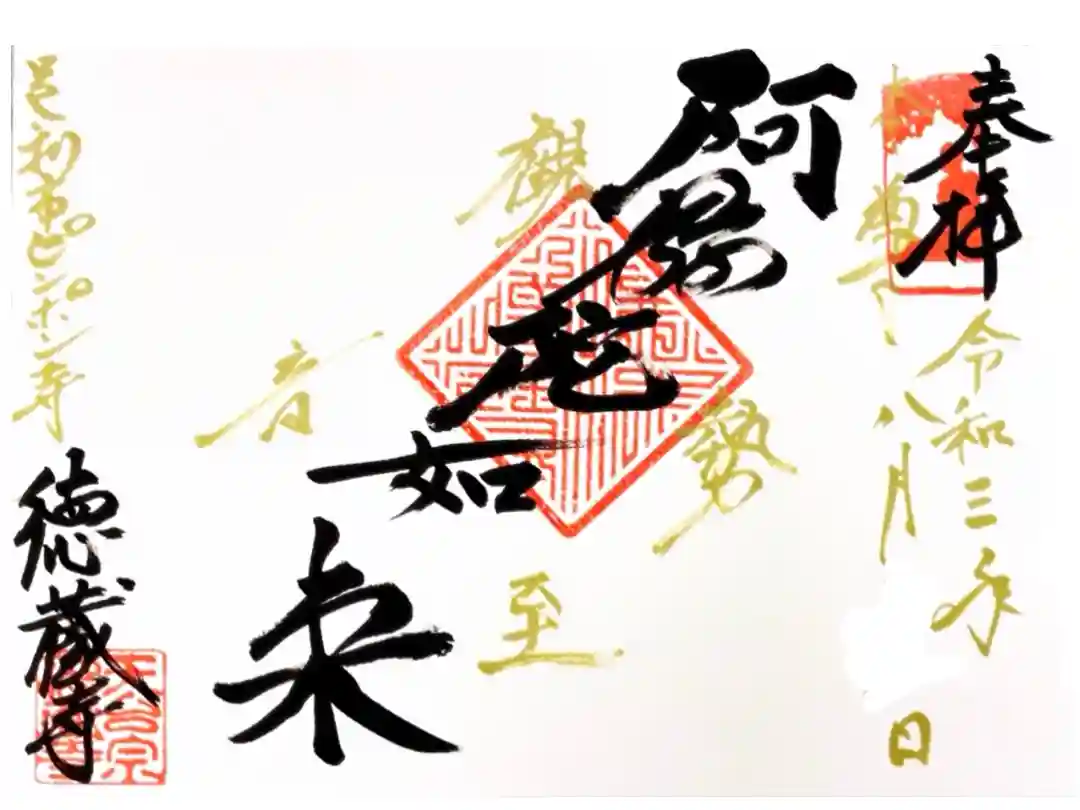 奉拝
令和三年
八月 日
阿弥陀如来
観音
勢至
足利市ピンポン寺
徳蔵寺